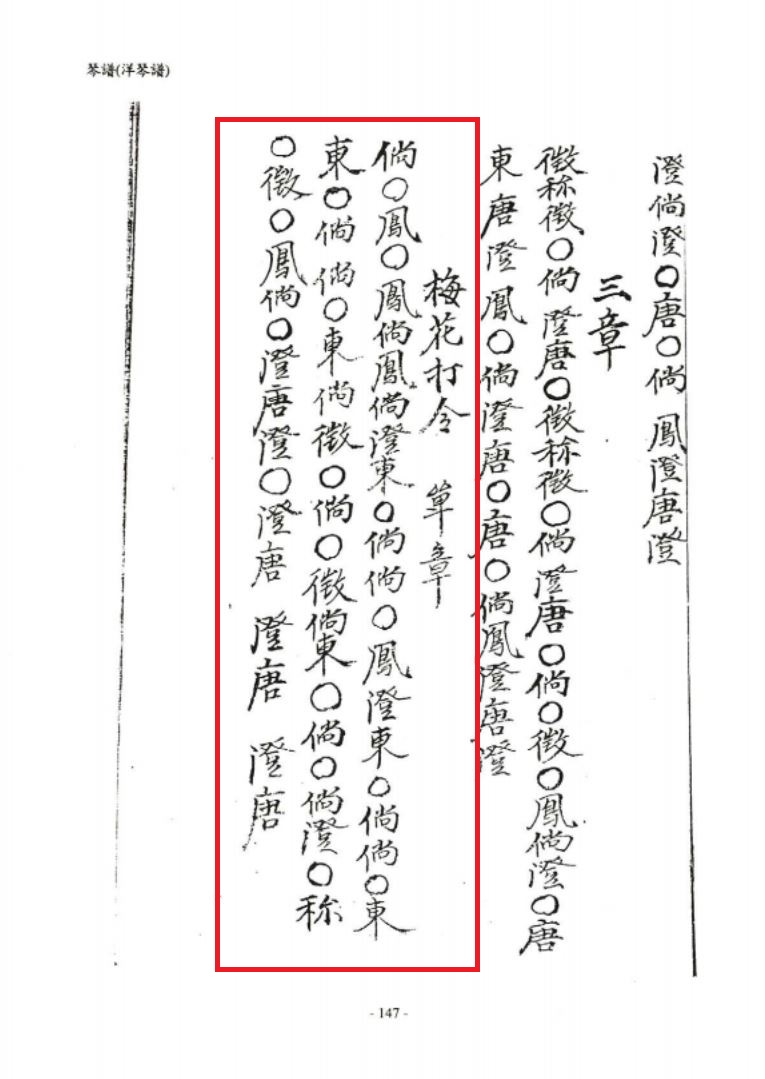 琴譜(洋琴譜)
澄倘澄○唐○倘鳳澄唐澄
三章
徵称徵○倘澄唐○徵称徵○倘澄唐○倘○徵○鳳倘澄○唐
東唐澄鳳○倘澄唐○唐○倘鳳澄唐澄
梅花打令 単章
倘○鳳○鳳倘鳳倘澄東○倘倘○鳳澄東○倘倘○東
東○倘倘○東倘徵○倘○徵倘東○倘○倘澄○称
○徵○鳳倘○澄唐澄○澄唐 澄唐 澄唐
- 147 -